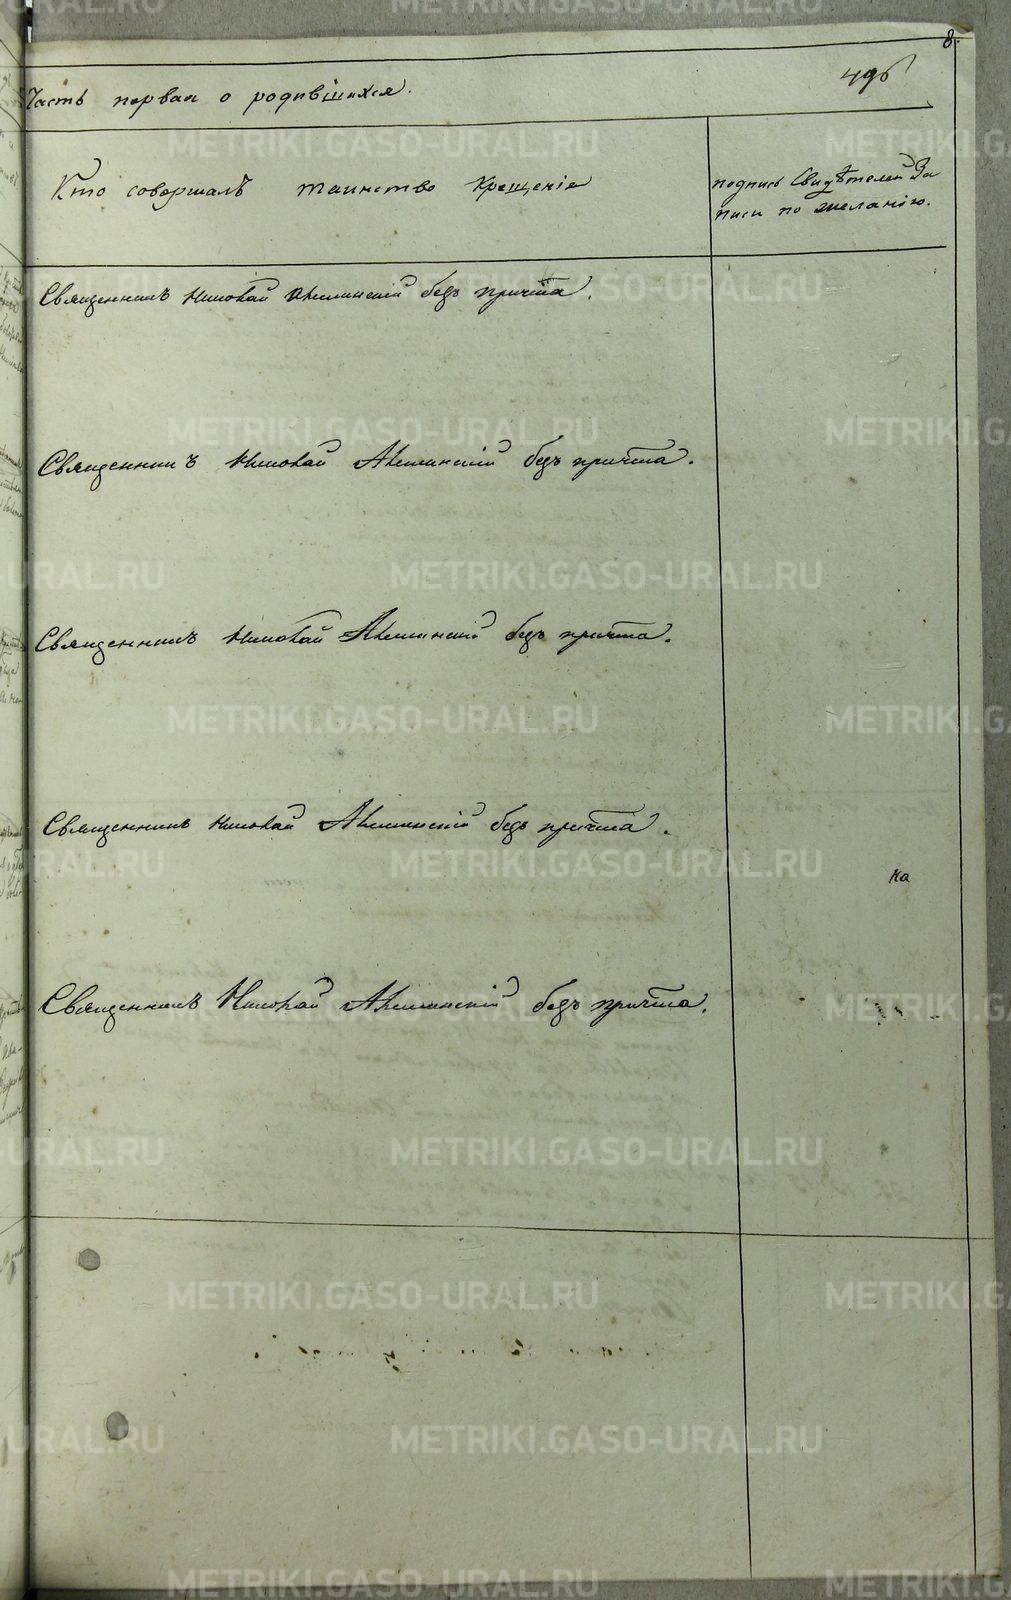 8.
496
Часть первая о родившихся.
Кто совершалъ таинство крещенія
подпись Свидѣтелей За
писи по желанію.
Священникъ Николай Аклинскій безъ причта.
Священникъ Николай Аклинскій безъ причта.
Священникъ Николай Аклинскій безъ причта.
Священникъ Николай Аклинскій безъ причта.
на
Священникъ Николай Аклинскій безъ причта.
METRIKI.GASO-URAL.RU